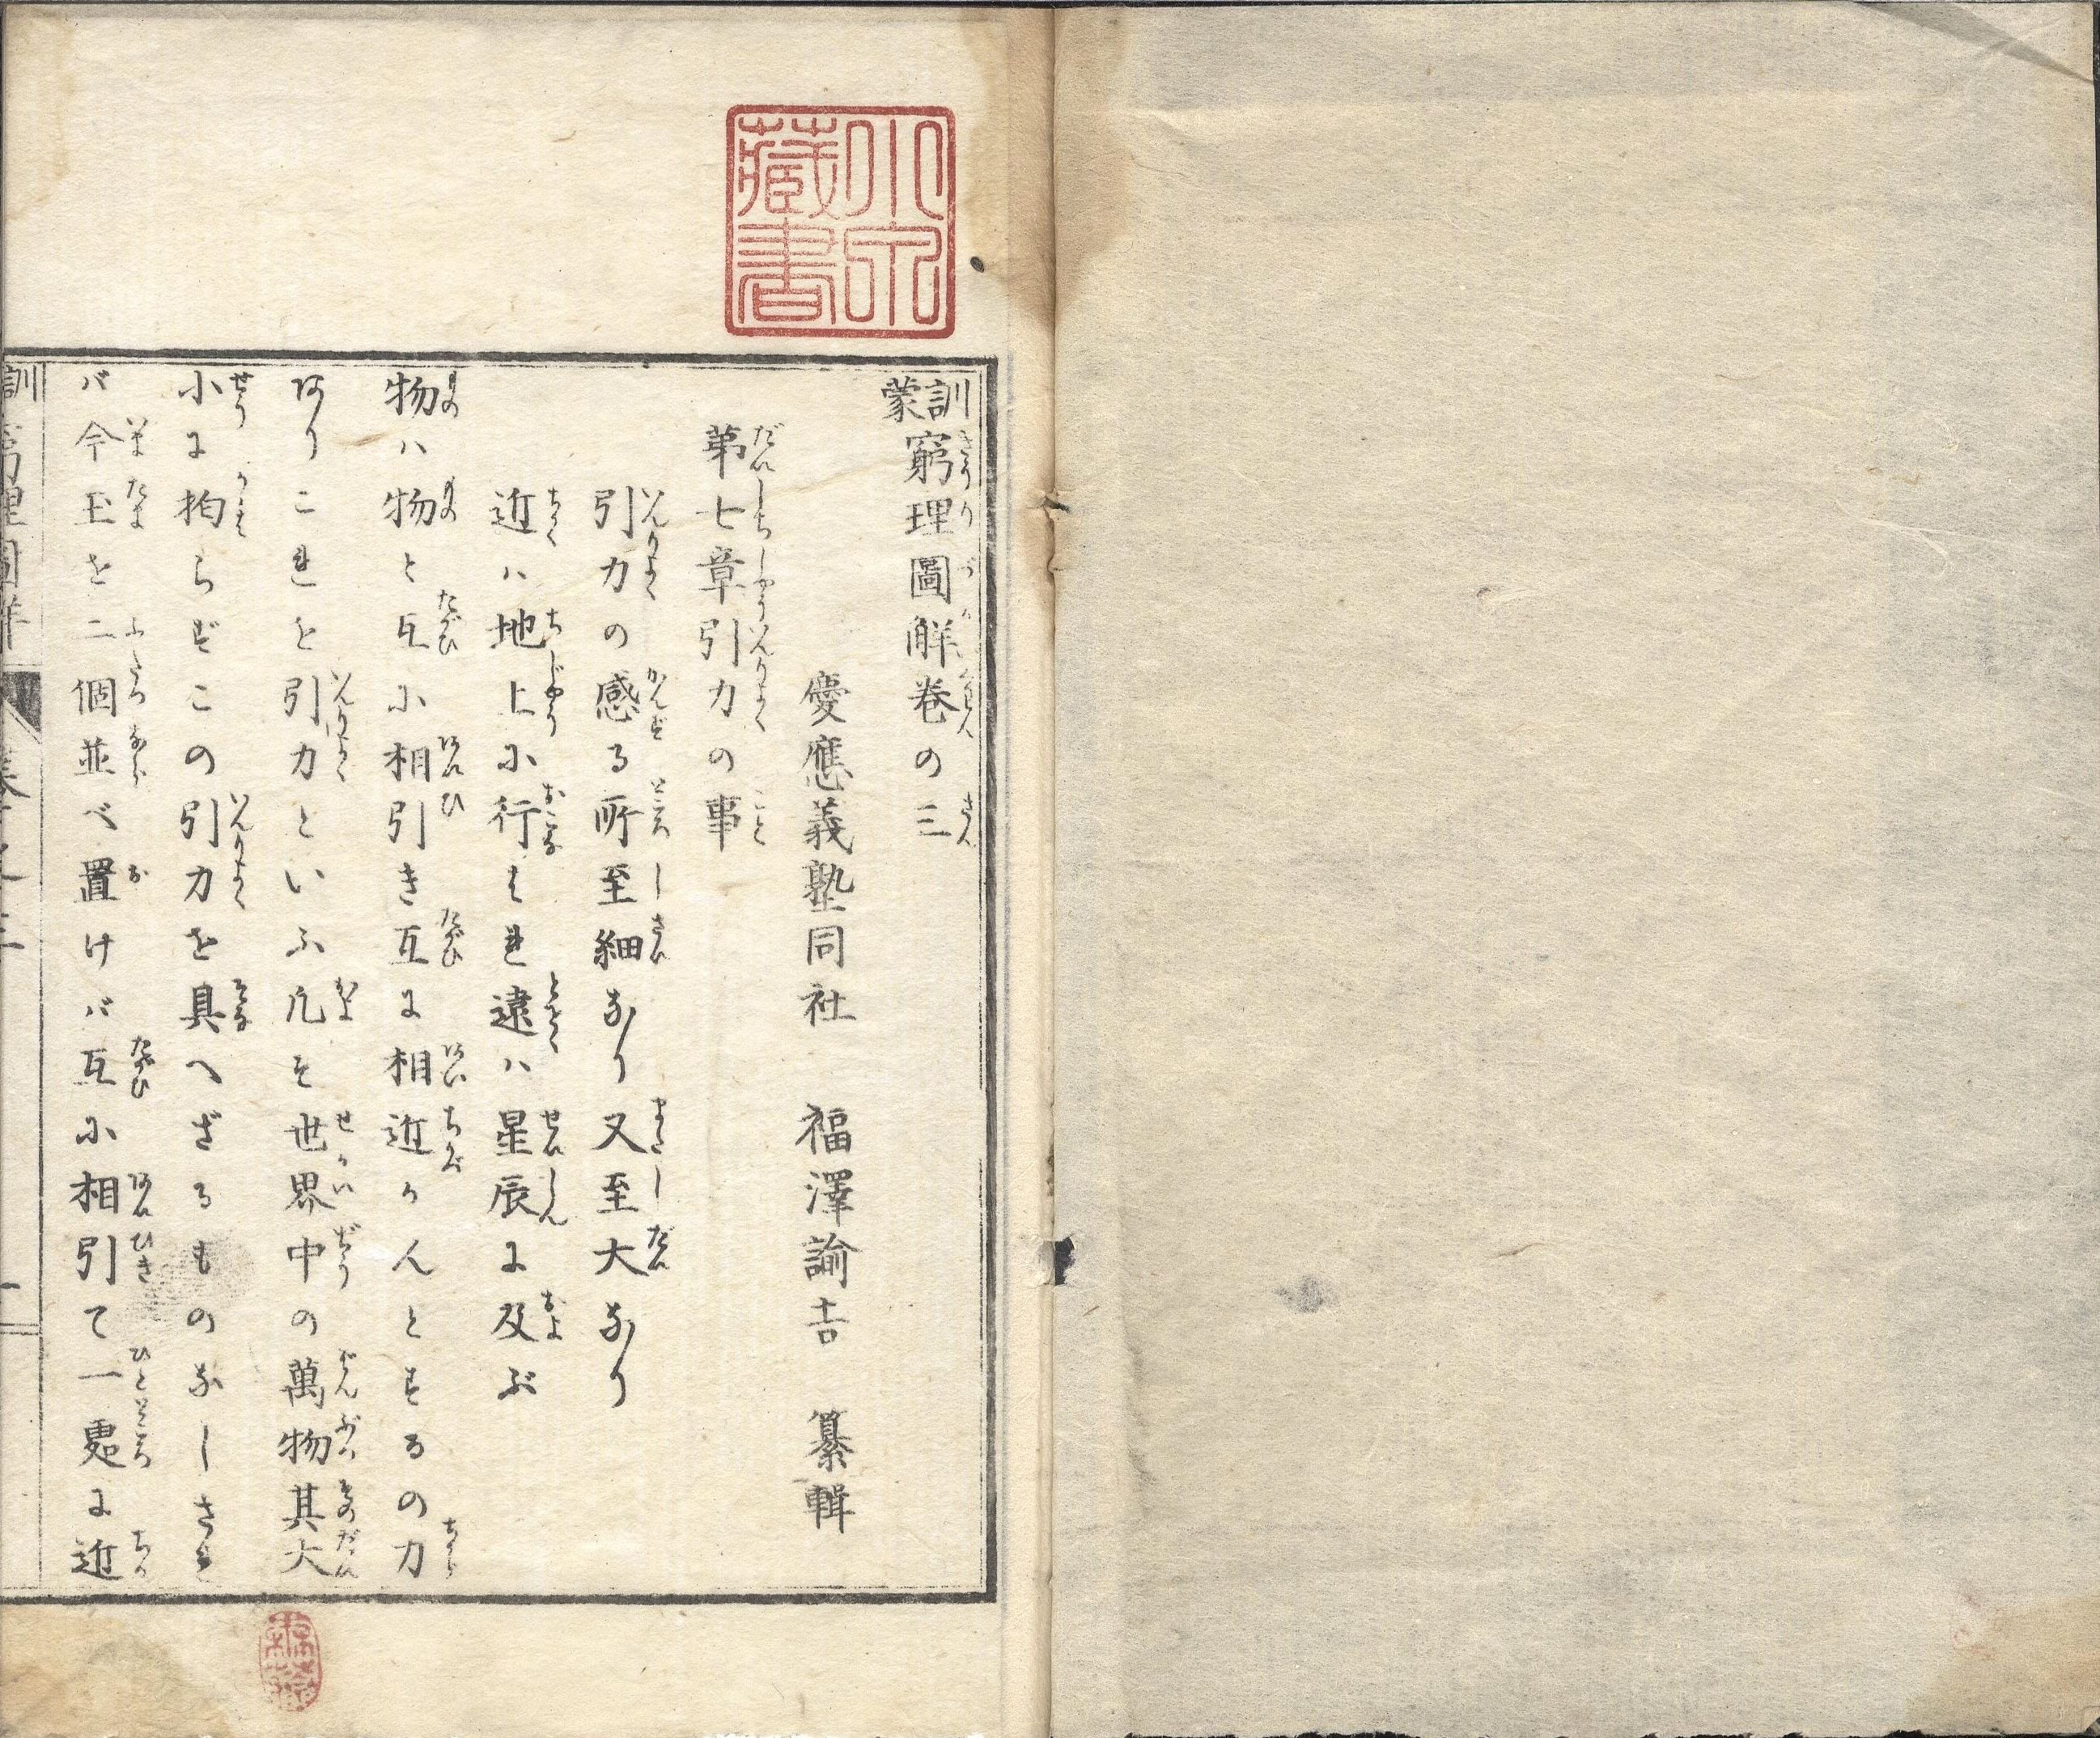 訓蒙窮理圖解卷の三
慶應義塾同社 福澤諭吉 纂輯
第七章引力の事
引力の感る所至細なり又至大なり
近ハ地上に行はれ遠ハ星辰に及ぶ
物ハ物と互に相引き互に相近かんとするの力
ありこれを引力といふ凡そ世界中の萬物其大
小に拘らずこの引力を具へざるものなしされ
バ今玉を二個並べ置けバ互に相引て一處に近
藏書